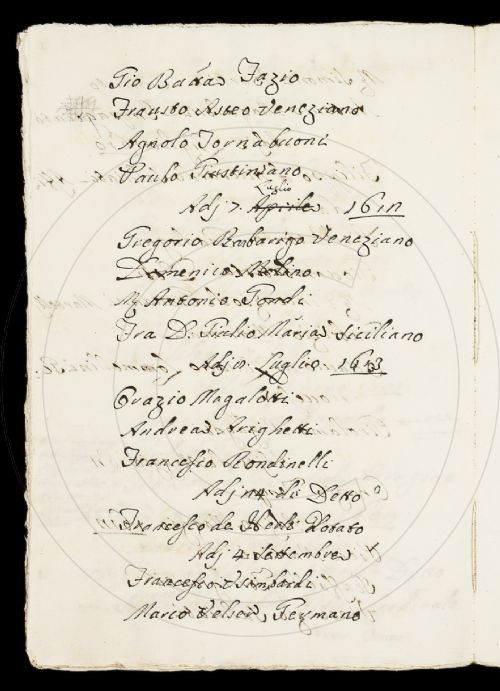 Gio Batta Fazio
Fausto Asteo Veneziano
Agnolo Tornabuoni
Paulo Giustiniano
Luglio
Adj 7. Aprile 1611
Gregorio Barbarigo Veneziano
Domenico Molino
Antonio Gondi
Fra D. Giulio Maria Siciliano
Adj Luglio 1613
Orazio Magalotti
Andrea Arighetti
Francesco Rondinelli
Adj di Detto
Francesco de
Adj 4 Settembre
Francesco
Marco Velser Germano